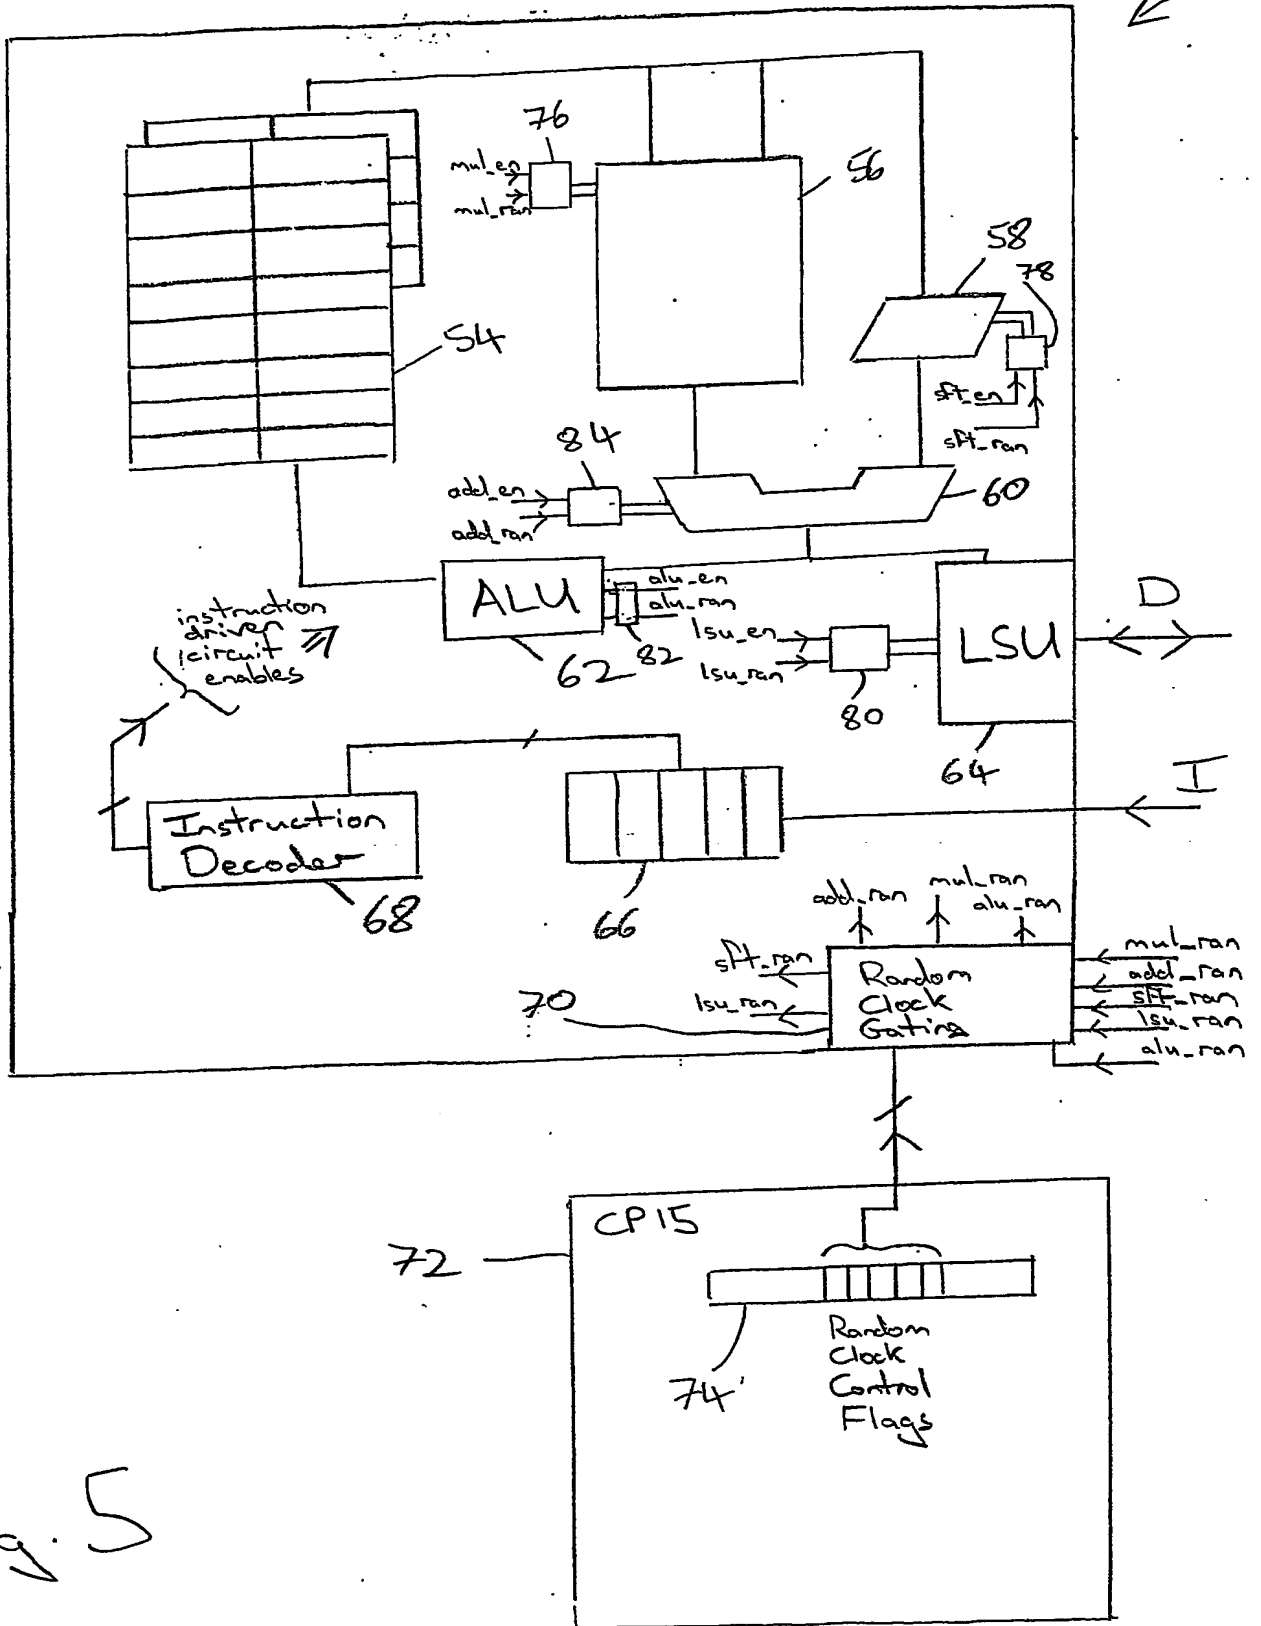 76
mul_en
mul_ran
56
58
78
54
sft_en
sft_ran
84
add_en
add_ran
60
ALU
alu_en
alu_ran
62
82
lsu_en
lsu_ran
80
LSU
64
D
instruction
driven
circuit
enables
I
Instruction
Decoder
68
66
add_ran
mul_ran
alu_ran
sft_ran
lsu_ran
70
Random
Clock
Gating
mul_ran
add_ran
sft_ran
lsu_ran
alu_ran
72
CP15
74
Random
Clock
Control
Flags
g. 5